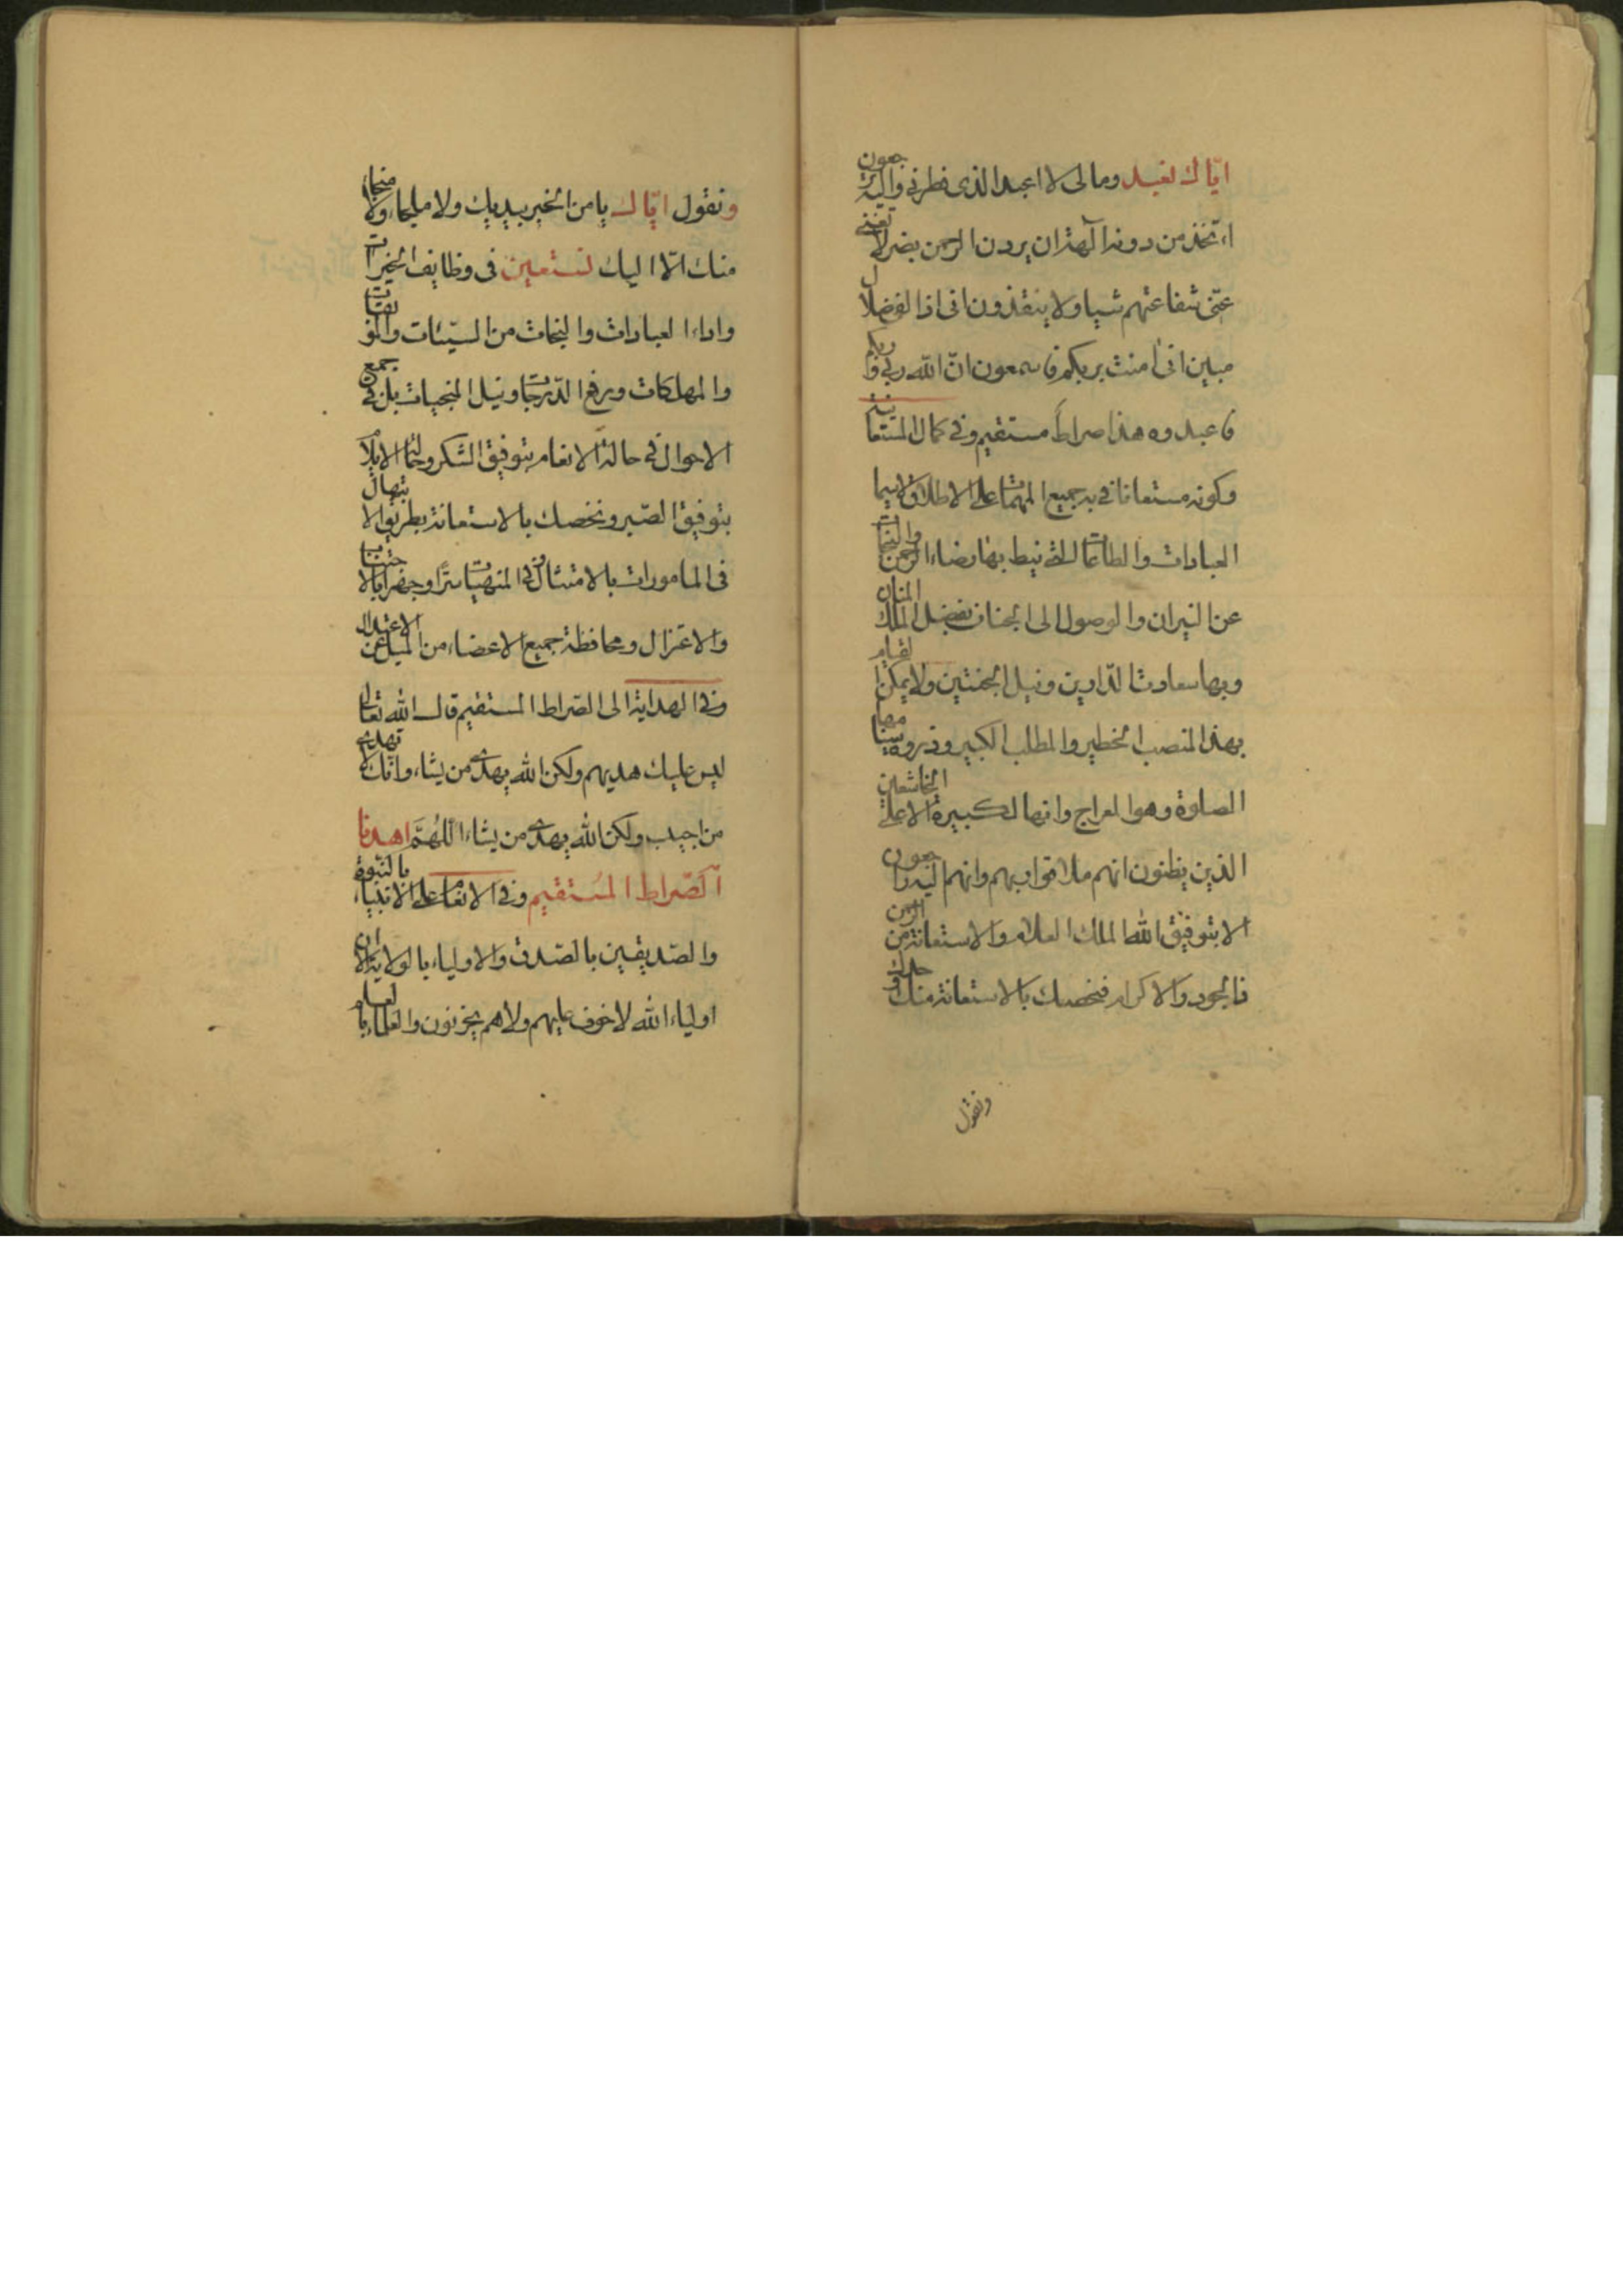 ايّاك نعبد ومالى لا اعبد الذى فطرنى واليه ترجعون
ءاتخذ من دونه آلهة ان يردن الرحمن بضر لا تغنى
عنّى شفاعتهم شيا ولا ينقذون انى اذا لفى ضلال
مبين انى امنت بربكم فاسمعون انّ الله ربى وربكم
فاعبدوه هذا صراط مستقيم وفى كمال المستعانية
وكونه مستعانا فى جميع المهمّات على الاطلاق لاسيما
العبادات والطاعات التى نيط بها رضاء الرحمن والنجات
عن النيران والوصول الى الجنان بفضل الملك المنان
وبها سعادت الدّارين ونيل الجنتين ولا يمكن القيام
بهذا المنصب الخطير والمطلب الكبير وذروة سينامها
الصلوة وهو المعراج وانها لكبيرة الا على الخاشعين
الذين يظنون انهم ملاقوا ربهم وانهم اليه راجعون
الا بتوفيق الله الملك العلام والاستعانة من الرحمن
ذا الجود والاكرام فنخصك بالاستعانة منك وحدك
ونقول
ونقول ايّاك يا من الخير بيديك ولا ملجاء ولا منجاء
منك الّا اليك نستعين فى وظايف الخيرات
واداء العبادات والنجات من السيّئات والموبقات
والمهلكات ورفع الدّرجات ونيل المنجيات بل فى جميع
الاحوال فى حالة الانعام بتوفيق الشكر وحالة الايلام
بتوفيق الصّبر ونخصك بالاستعانة بطريق الابتهال
فى المامورات بالامتثال وفى المنهيّات سرًّا وجهرا بالاجتناب
والاعتزال ومحافظة جميع الاعضاء من الميل عن الاعتدال
وفى الهداية الى الصّراط المستقيم قال الله تعالى
ليس عليك هديهم ولكن الله يهدى من يشاء وانّك لا تهدى
من احببت ولكن الله يهدى من يشاء اللّهمّ اهدنا
الصّراط المُستقيم وفى الانعام على الانبياء بالنّبوة
والصّديقين بالصّدق والاولياء بالولاية الا ان
اولياء الله لا خوف عليهم ولا هم يحزنون والعلماء بالعلم